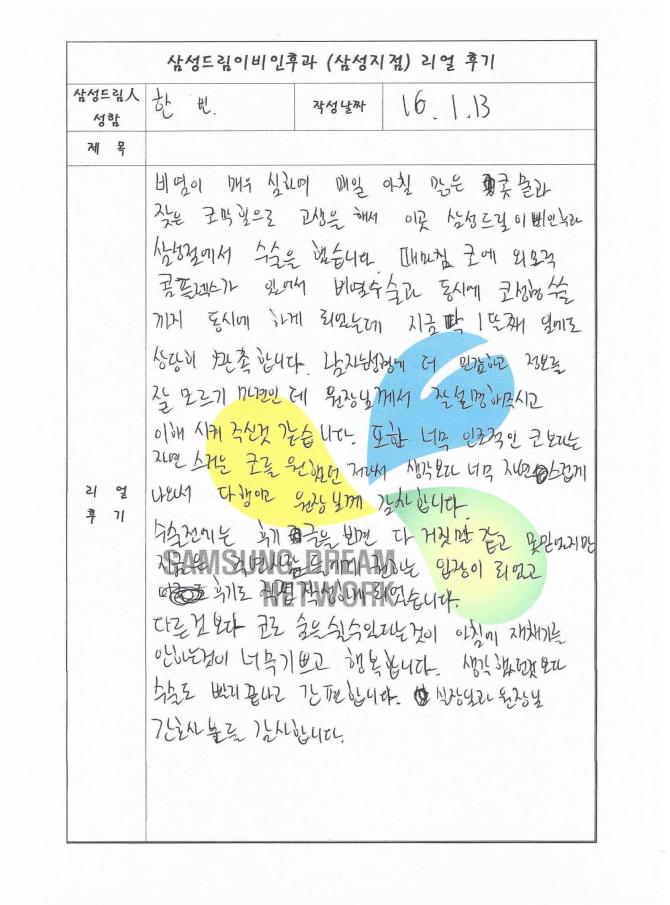 삼성드림이비인후과 (삼성지점) 리얼 후기
삼성드림人 성함
한 빈
작성날짜
16. 1. 13
제 목
리 얼 후 기
비염이 매우 심하며 매일 아침 맑은 콧물과
잦은 코막힘으로 고생을 해서 이곳 삼성드림이비인후과
삼성점에서 수술을 했습니다. 때마침 코에 외모적
콤플렉스가 있어서 비염수술과 동시에 코성형수술
까지 동시에 하게 되었는데 지금 딱 1달째 임에도
상당히 만족합니다. 남자는성형에 더 민감하고 정보를
잘 모르기 마련인데 원장님께서 잘설명해주시고
이해 시켜 주신것 같습니다. 또한 너무 인조적인 코보다는
자연스러운 코를 원했던 저라서 생각보다 너무 자연스럽게
나와서 다행이고 원장님께 감사합니다.
수술전에는 후기글을 보면 다 거짓말 같고 못믿었지만
지금은 권하는 입장이 되었고
후기도 직접 작성하게 되었습니다.
다른것보다 코로 숨은쉴수있다는것이 아침에 재채기를
안하는것이 너무기쁘고 행복합니다. 생각했던것보다
수술도 빨리끝나고 간편합니다. 실장님과 원장님
간호사분들 감사합니다.
SAMSUNG DREAM
NETWORK